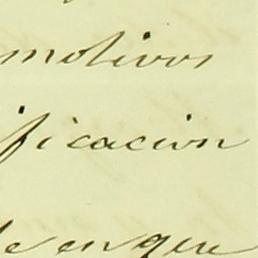 motivos
ficacion
de en que